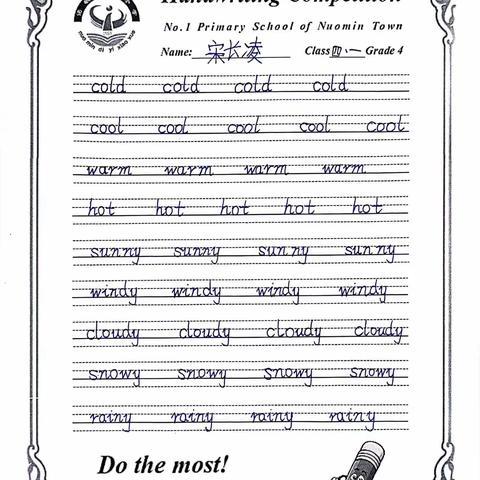 Handwriting Competition
No.1 Primary School of Nuomin Town
Name: 宋长凌 Class 四、一 Grade 4
cold cold cold cold
cool cool cool cool cool
warm warm warm warm
hot hot hot hot hot
sunny sunny sunny sunny
windy windy windy windy
cloudy cloudy cloudy cloudy
snowy snowy snowy snowy
rainy rainy rainy rainy
Do the most!